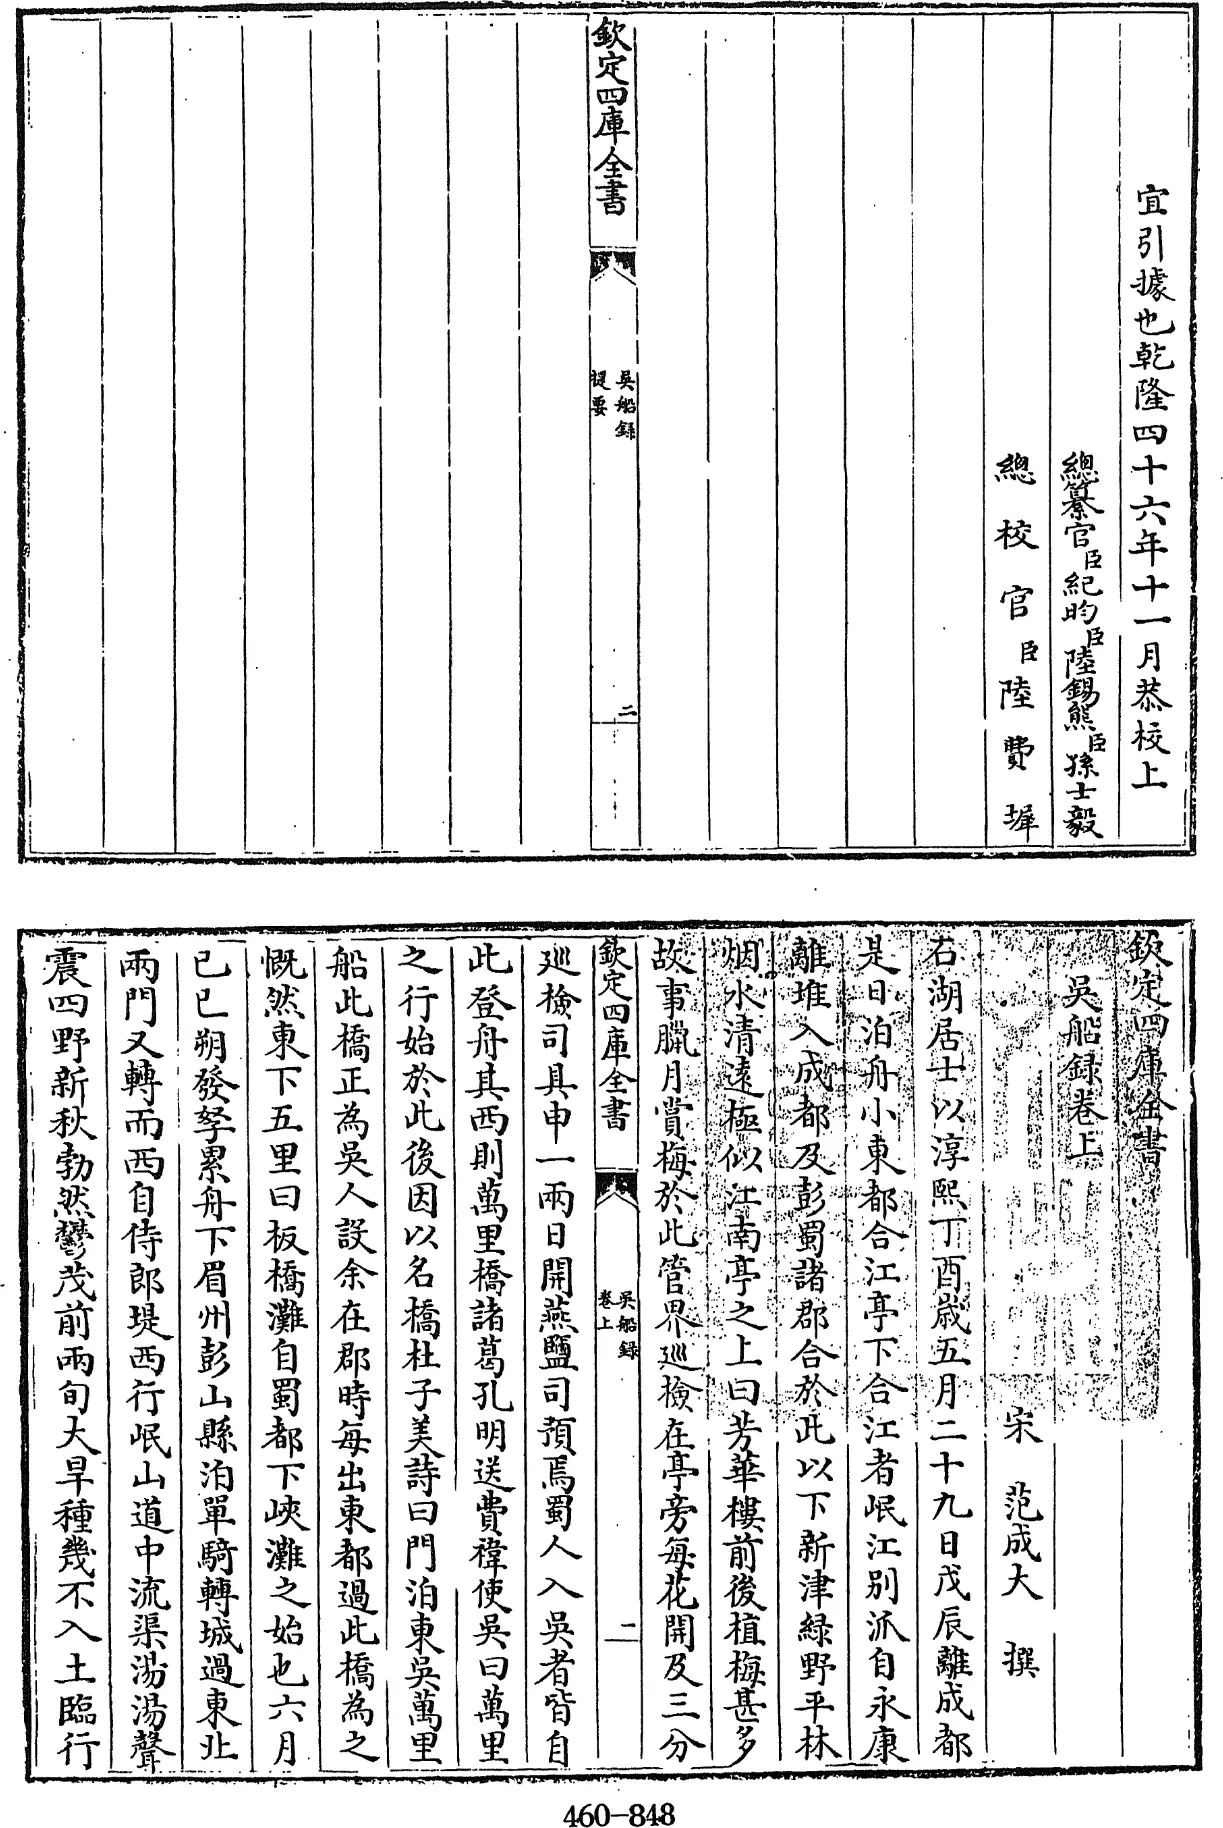 宜引據也乾隆四十六年十一月恭校上
總纂官臣紀昀臣陸錫熊臣孫士毅
總校官臣陸費墀
欽定四庫全書
吳船錄
提要
二
欽定四庫全書
吳船録卷上
宋 范成大 撰
石湖居士以淳熙丁酉歲五月二十九日戊辰離成都
是日泊舟小東都合江亭下合江者岷江別派自永康
離堆入成都及彭蜀諸郡合於此以下新津緑野平林
烟水清遠極似江南亭之上曰芳華樓前後植梅甚多
故事臘月賞梅於此管界巡檢在亭旁每花開及三分
欽定四庫全書
吳船錄
卷上
一
巡檢司具申一兩日開燕鹽司預焉蜀人入吳者皆自
此登舟其西則萬里橋諸葛孔明送費禕使吳曰萬里
之行始於此後因以名橋杜子美詩曰門泊東吳萬里
船此橋正為吳人設余在郡時每出東都過此橋為之
慨然東下五里曰板橋灘自蜀都下峽灘之始也六月
己巳朔發孥累舟下眉州彭山縣泊單騎轉城過東北
兩門又轉而西自侍郎堤西行岷山道中流渠湯湯聲
震四野新秋勃然鬱茂前兩旬大旱種幾不入土臨行
460-848